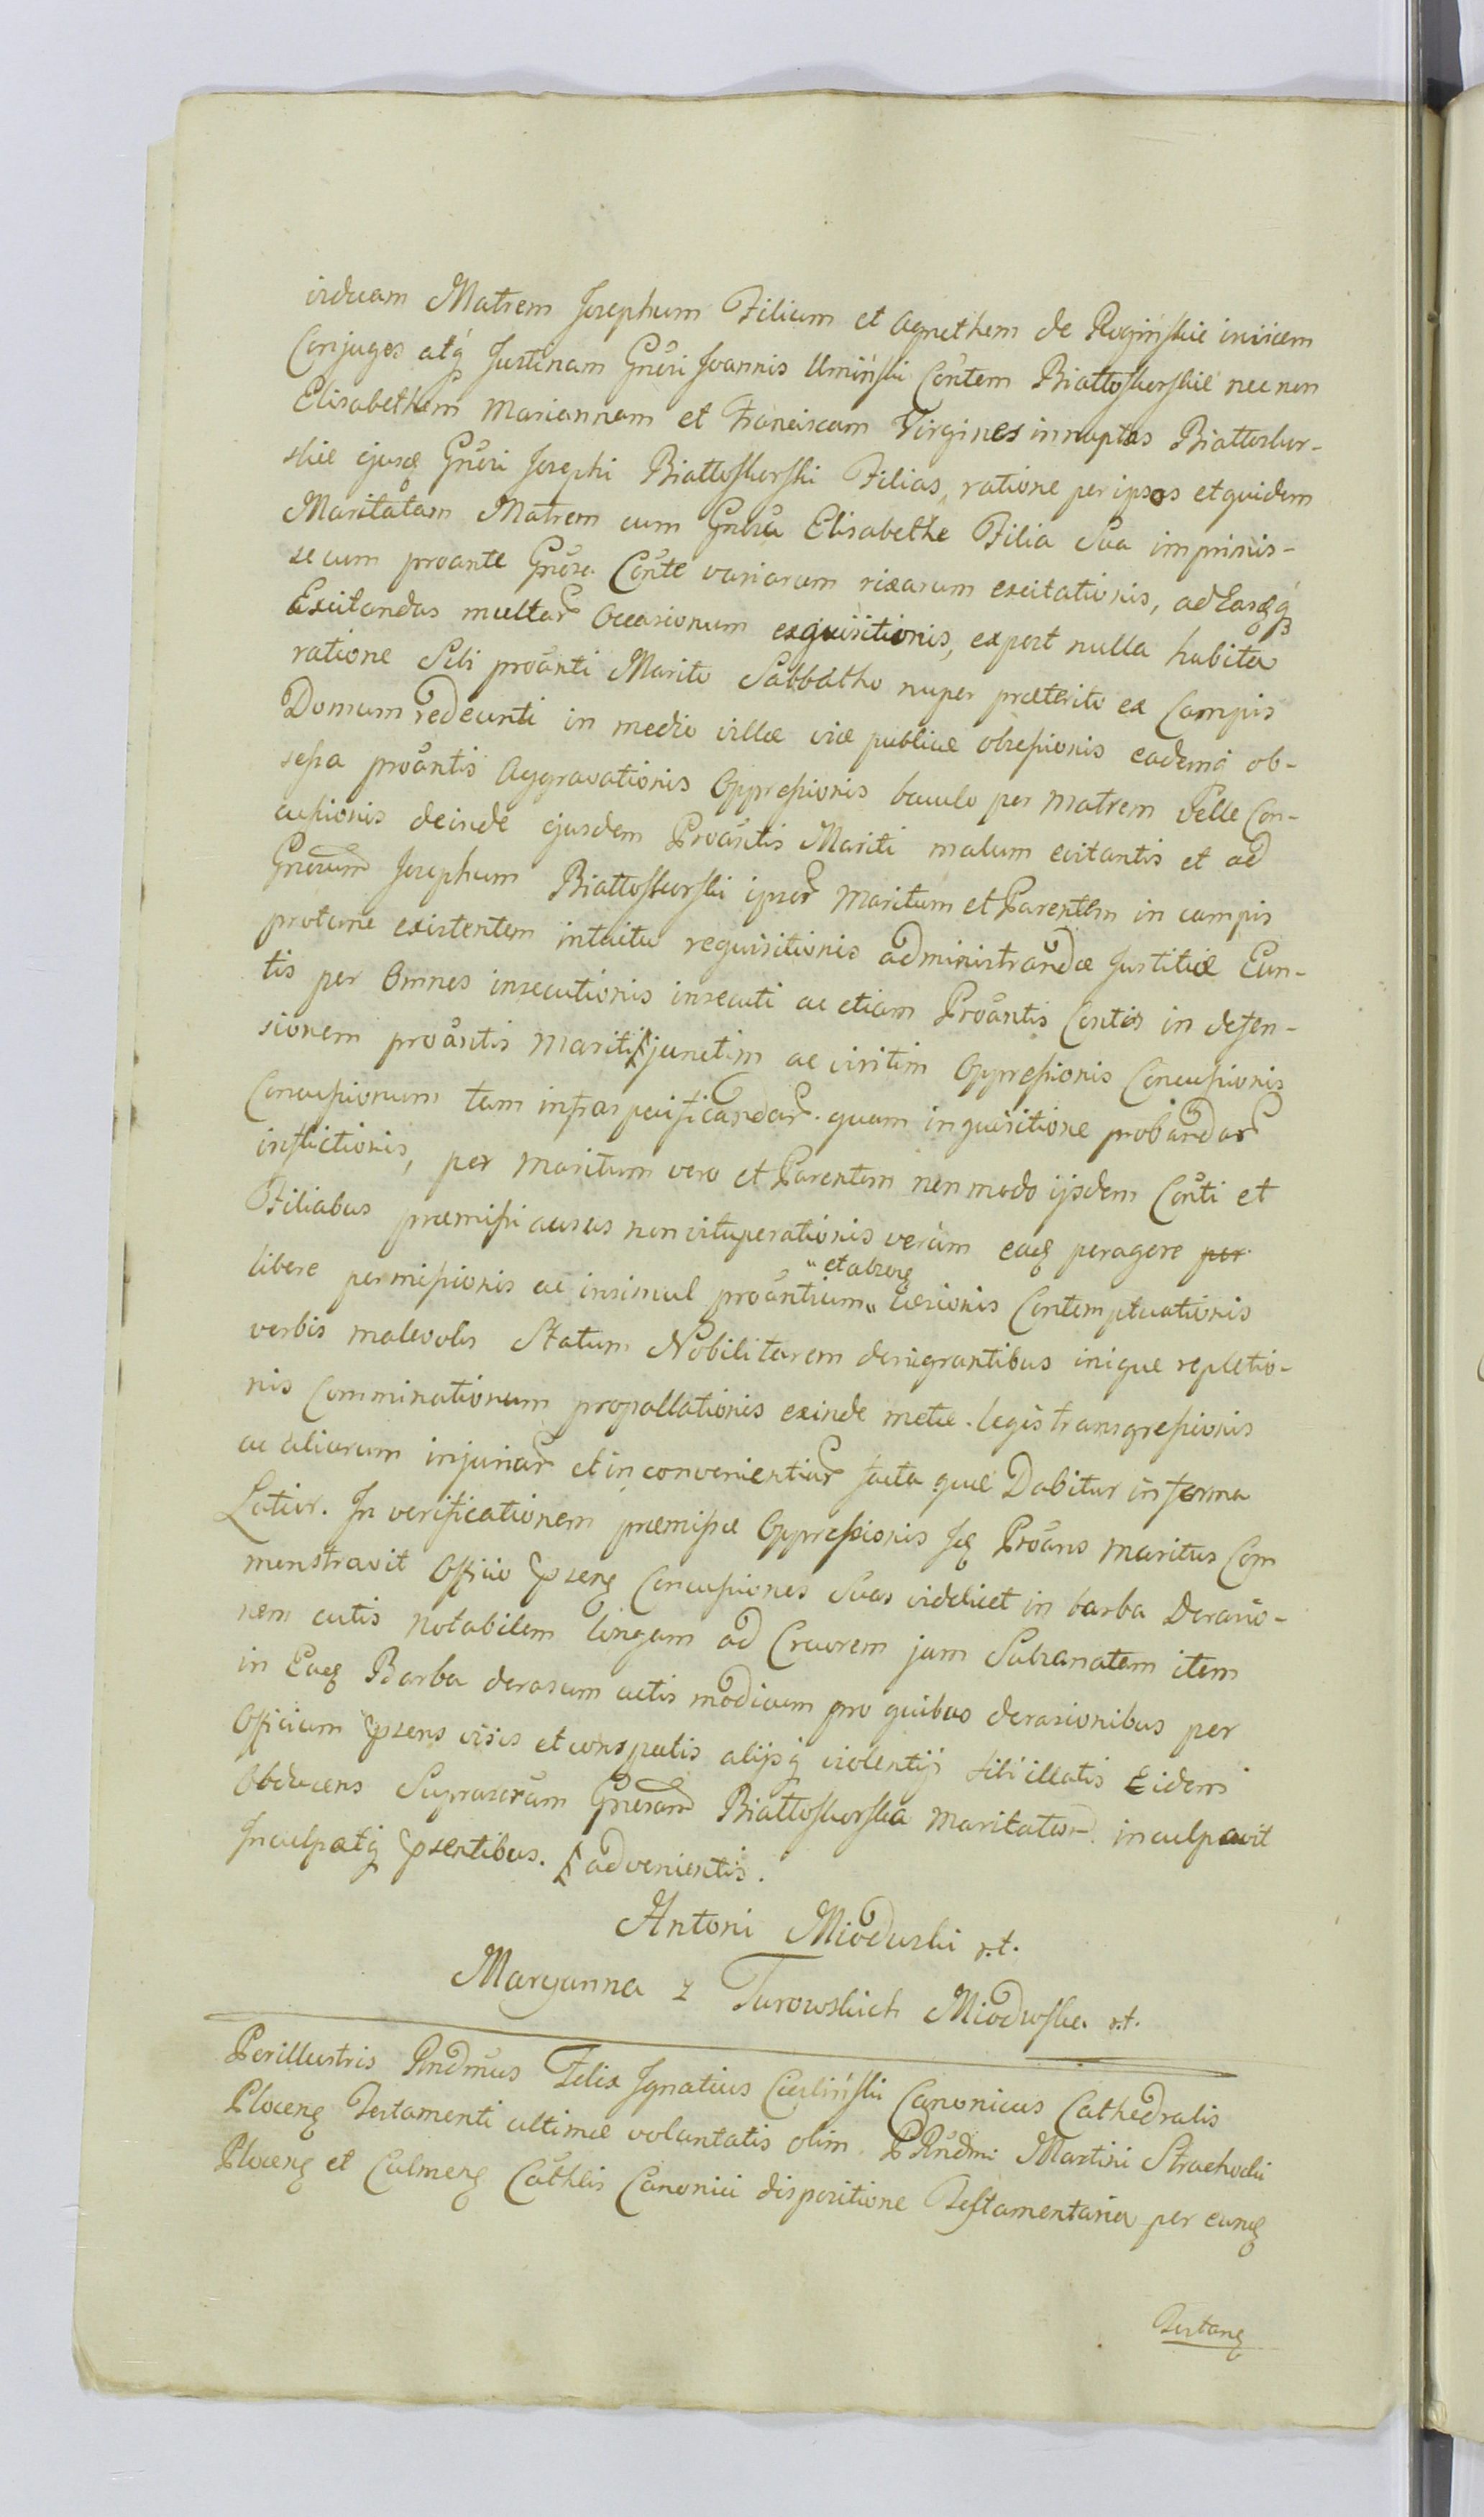 viduam Matrem Josephum Filium et Agnethem de Rogińskie invicem
Conjuges atq́ Justinam Gnősi Joannis Umiński Cőntem Białłoskorskie nec non
Elisabetham Mariannam et Franciscam Virgines innuptas Białłoskor-
skie ejusq Gnősi Josephi Białłoskorski Filias, ratione per ipsos et quidem
Maritatam Matrem cum Gnősa Elisabethe Filia Sua imprimis-
secum proante Gnősa Cőnte variarum rixarum excitationis, ad Easqq́
Excitandas multar Occasionum exquisitionis, expost nulla habita
ratione Sibi proanti Marito Sabbatho nuper præterito ex Campis
Domum redeunti in medio villæ viæ publicæ obsessionis eademq́ ob-
sessa proantis Aggravationis Oppressionis baculo per Matrem velle Con-
cussionis deinde ejusdem Proantis Mariti malum evitantis et ad
Gnősum Josephum Białłoskorski ipsar Maritum et Parentem in campis
protunc existentem intuitu requisitionis administrandæ Justitiæ Eun-
tis per Omnes insecutionis insecuti ac etiam Proantis Contis in defen-
sionem proantis Mariti junctim ac viritim Oppressionis Concussionis
Concussionum tam infraspecificandar quam inquisitione probandar
inflictionis, per Maritum vero et Parentem non modo ijsdem Cőnti et
Filiabus præmissi ausus non vituperationis verùm eaq peragere per
libere permissionis ac insimul proantium " et absenq " Læsionis Contemptuationis
verbis malevolis Statum Nobilitarem denigrantibus inique repletio-
nis Comminationum propallationis exinde metu legis transgressionis
ac aliarum injuriar et inconvenientiar facta quæ Dabitur in forma
Latior. In verificationem præmissæ Oppressionis Jq Proans Maritus Com
monstravit Officio psenq Concussiones Suas videlicet in barba Derasio-
nem cutis notabilem longam ad Cruorem jam Subsanatam item
in Eaq Barba derasum cutis modicum pro quibus derasionibus per
Officium psens visis et conspectis alijsq́ violentijs sibi illatis Eidem
Obducens Suprascram Gnősam Białłoskorska Maritatam inculpavit
Inculpatq́ psentibus. advenientis.
Antoni Mioduski r.t.
Maryanna z Turowskich Mioduska r.t.
Perillustris Rndmus Felix Ignatius Cieśliński Canonicus Cathedralis
Plocenq Testamenti ultimæ voluntatis olim PRndmi Martini Strachocki
Plocenq et Culmenq Cathlis Canonici dispositione Testamentaria per eunq
Testanq